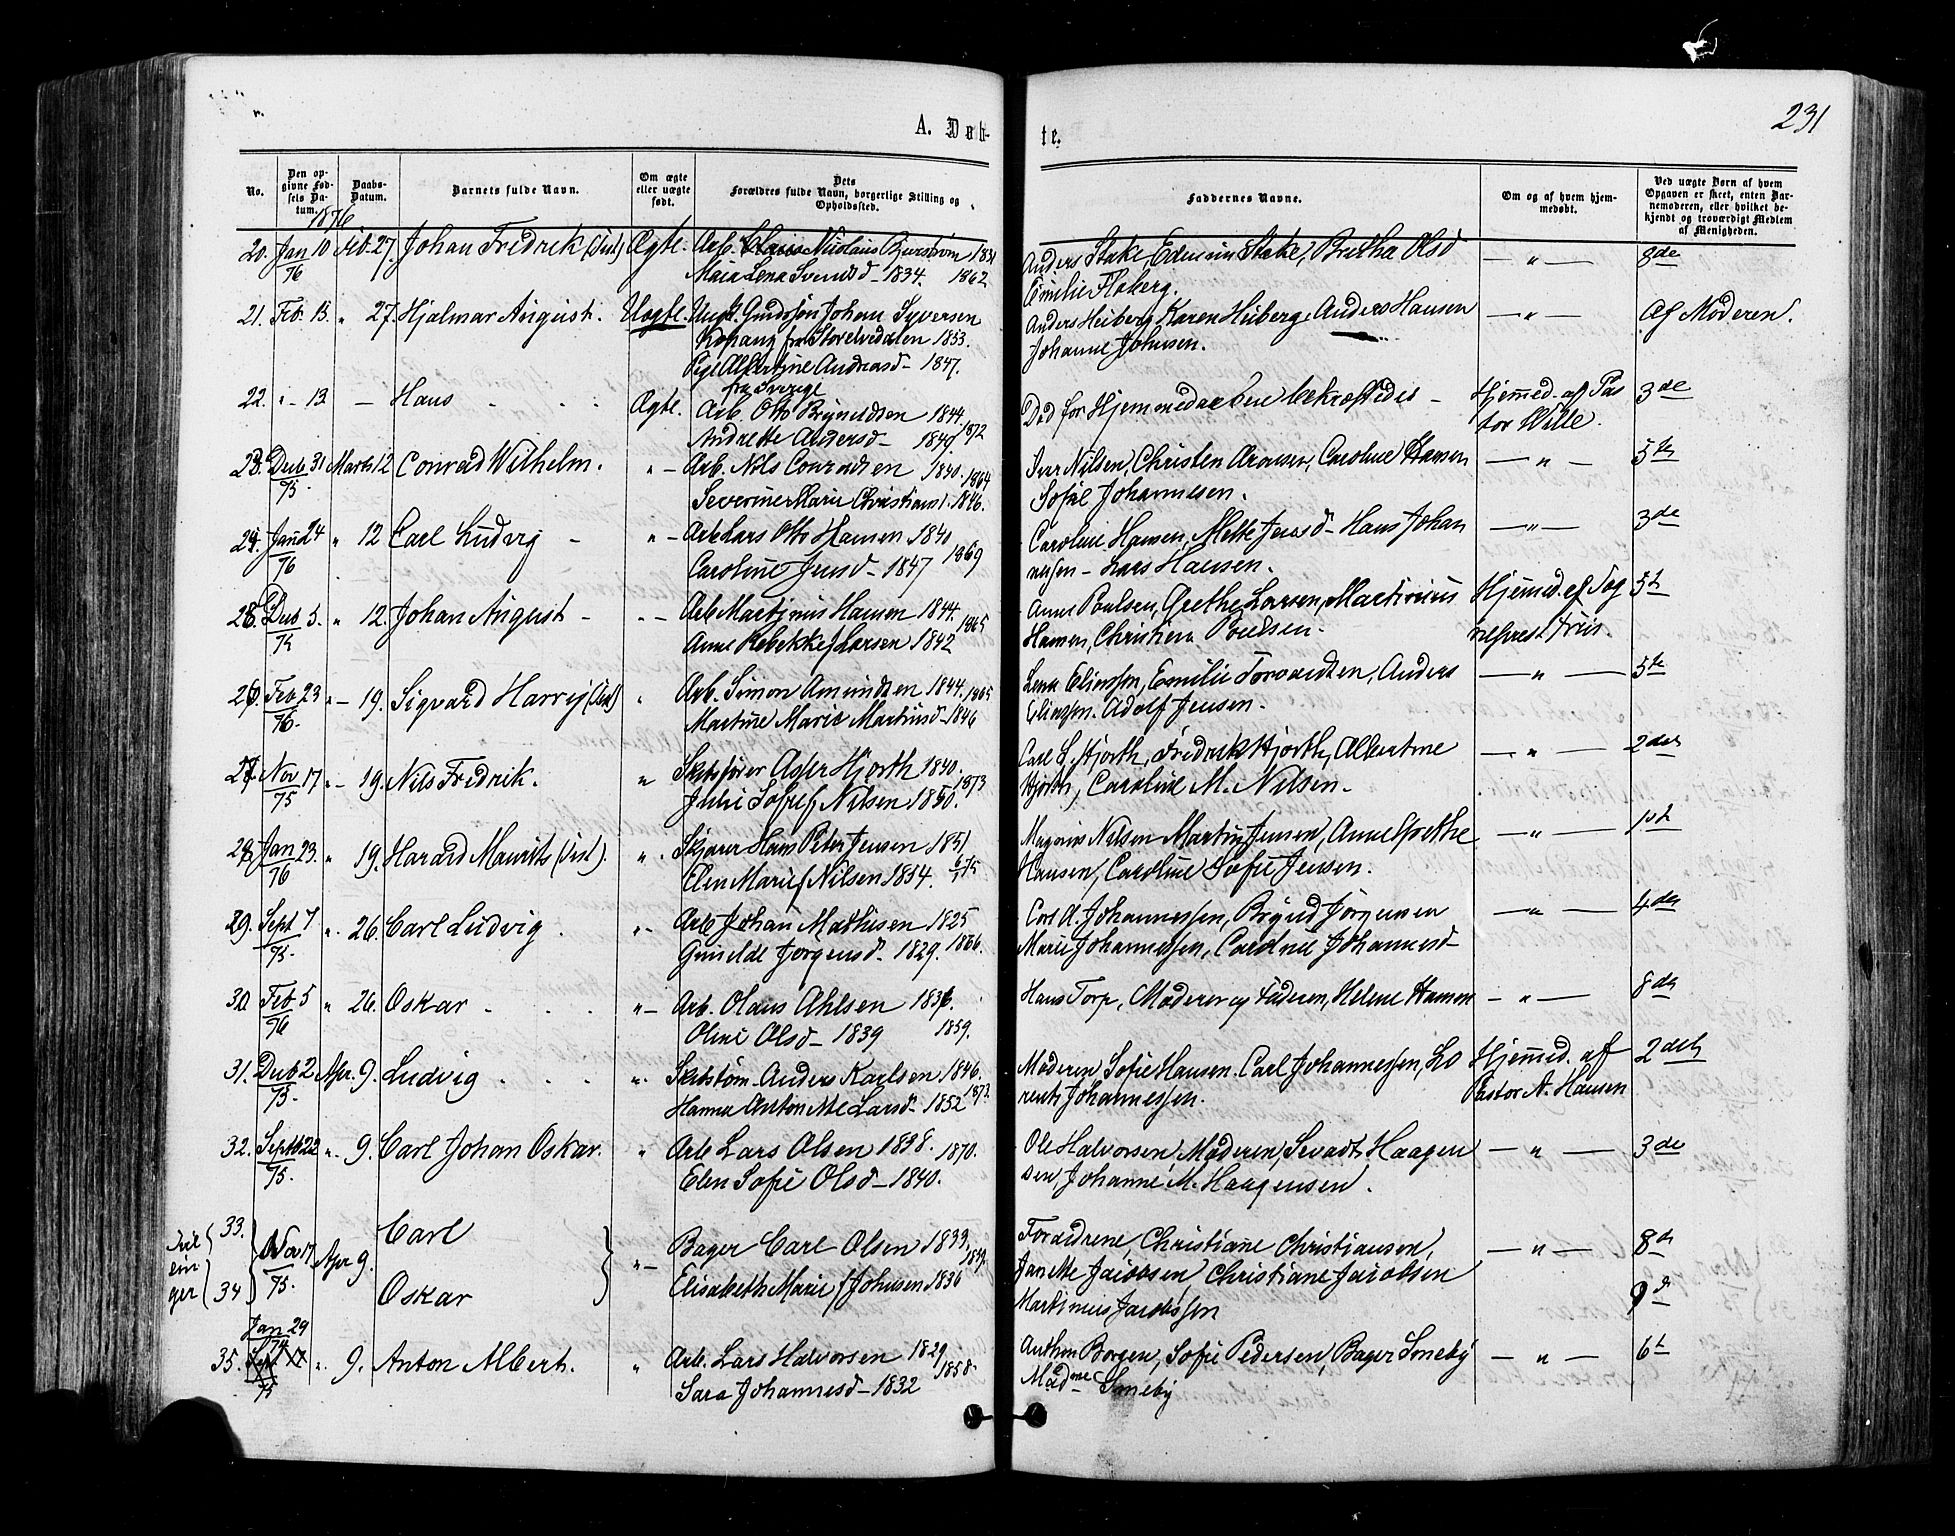 231
A. Døb-
te.
No.
Den op-
givne Fød-
sels Da-
tum.
Daabs-
Datum.
Barnets fulde Navn.
Om ægte
eller uægte
født.
Dets
Forældres fulde Navn, borgerlige Stilling og
Opholdssted.
Faddernes Navne.
Om og af hvem hjem-
medøbt.
Ved uægte Børn af hvem
Opgaven er skeet, enten Bar-
nemoderen, eller hvilket be-
kjendt og troværdigt Medlem
af Menigheden.
1876
20. Jan 10 Feb. 27. Johan Fredrik (Diss) Ægte. Arb. Claus Nicolaus Bjurstrøm 1831 Anders Stake, Stake, Bretha Olsd — " — 8de
76 Maia Lena Svensd 1834. 1862 Emilie Floberg.
21. Feb 13. " 27. Hjalmar August. Uægte. Ungk. Gaardsøn Johan Syversen Anders Heiberg, Karen Heiberg, Anders Hansen — " — Af Moderen.
Kopang fra Storelvedalen 1853. Johanne Johnsen.
Pige Albertine Andreasd – 1847.
fra Sverige
22. " – 13 — Hans Ægte. Arb. Otto Brynildsen 1844. Død før Hjemmedaaben bekræftedes – Hjemmed. af Pas 3de
Andrette Andersd – 1849 1872 tor Wille.
23. Decb. 31 Marts 12 Conrad Wilhelm. " – Arb. Nils Conradsen 1840. 1864 Iver Nilsen, Christen Aronsen, Caroline Hansen — " — 5te
75. Severine Marie Christians d. 1846. Sofie Johannesen.
24. Jan 24 " 12 Carl Ludvig – " – Arb Lars Otto Hansen 1840 Caroline Hansen, Mette Jensd – Hans Johan — " — 3de
76 Caroline Jensd – 1847 1869 nesen – Lars Hansen.
25. Decb 5. " 12. Johan August – " – Arb Martinius Hansen 1844. 1865 Anne Poulsen, Grethe Larsen, Martinius Hjemmed. af Sog 5te
75 Anne Rebekke f Larsen 1842 Hansen, Christian Poulsen. nepræst Friis.
26. Feb 23 " – 19. Sigvard Harry (Diss) " Arb. Simon Amundsen 1844. 1865 Lena Eliassen, Emilie Torvaldsen, Anders — " — 5te
76 Martine Marie Martinsd – 1846 Eliassen. Adolf Jensen.
27. Nov 17 " – 19. Nils Fredrik. " Skibsfører Asper Hjorth 1840. 1873 Carl L. Hjorth, Fredrik Hjorth, Albertine — " — 2det
75 Julie Sofie f Nilsen 1850. Hjorth, Caroline M. Nilsen.
28. Jan 23. " 19. Harald Mauritz (Diss). " Skjører Hans Peter Jensen 1851 Nilsen Martin Jensen, Anne Grethe — " — 1st
76 Elen Marie f Nilsen 1854. Hansen, Caroline Sofie Jensen.
29. Sept 7 " 26. Carl Ludvig. " – Arb Johan Mathisen 1825 Carl A. Johannessen, Brynild Jørgensen — " — 4de
75. Gunilde Jørgensd. 1829. 1866. Marie Johannessen, Caroline Johannesd –
30. Feb 5 " 26. Oskar . " – Arb. Olaus Ahlsen 1836. Hans Torp, Moderen og Faderen, Helene Hansen — " — 8de
76 Oline Olsd – 1839 1859.
31. Decb 2 Apr. 9. Ludvig . " Skibstøm. Anders Karlsen 1846. Moderen Sofie Hansen. Carl Johannessen, Lo Hjemmed. af 2det
75. Hanna Antonette Larsd – 1852 1873 rents Johannessen. Pastor A. Hansen
32. Septb 22 " – 9. Carl Johan Oskar. " Arb Lars Olsen 1838. 1870. Ole Halvorsen, Moderen, Sevadt Haagen — " — 3de
75. Elen Sofie Olsd – 1840. sen, Johanne M. Haagensen.
Tvil
lin
ger
33. Nov 17 Apr 9. Carl " – Bager Carl Olsen 1833. 1859. Forældrene, Christiane Christiansen, — " — 8de
75. Janette Jacobsen Christiane Jacobsen
34 Oskar Elisabeth Marie f Johnsen 1836 Martinius Jacobsen 9de
Jan 29
74
35. Sept 17 " 9. Anton Albert. " Arb. Lars Halvorsen 1829 1858. Anthon Borgen, Sofie Pedersen, Bager Smeby — " — 6te
75 Sara Johannesd – 1832 Madme Smeby